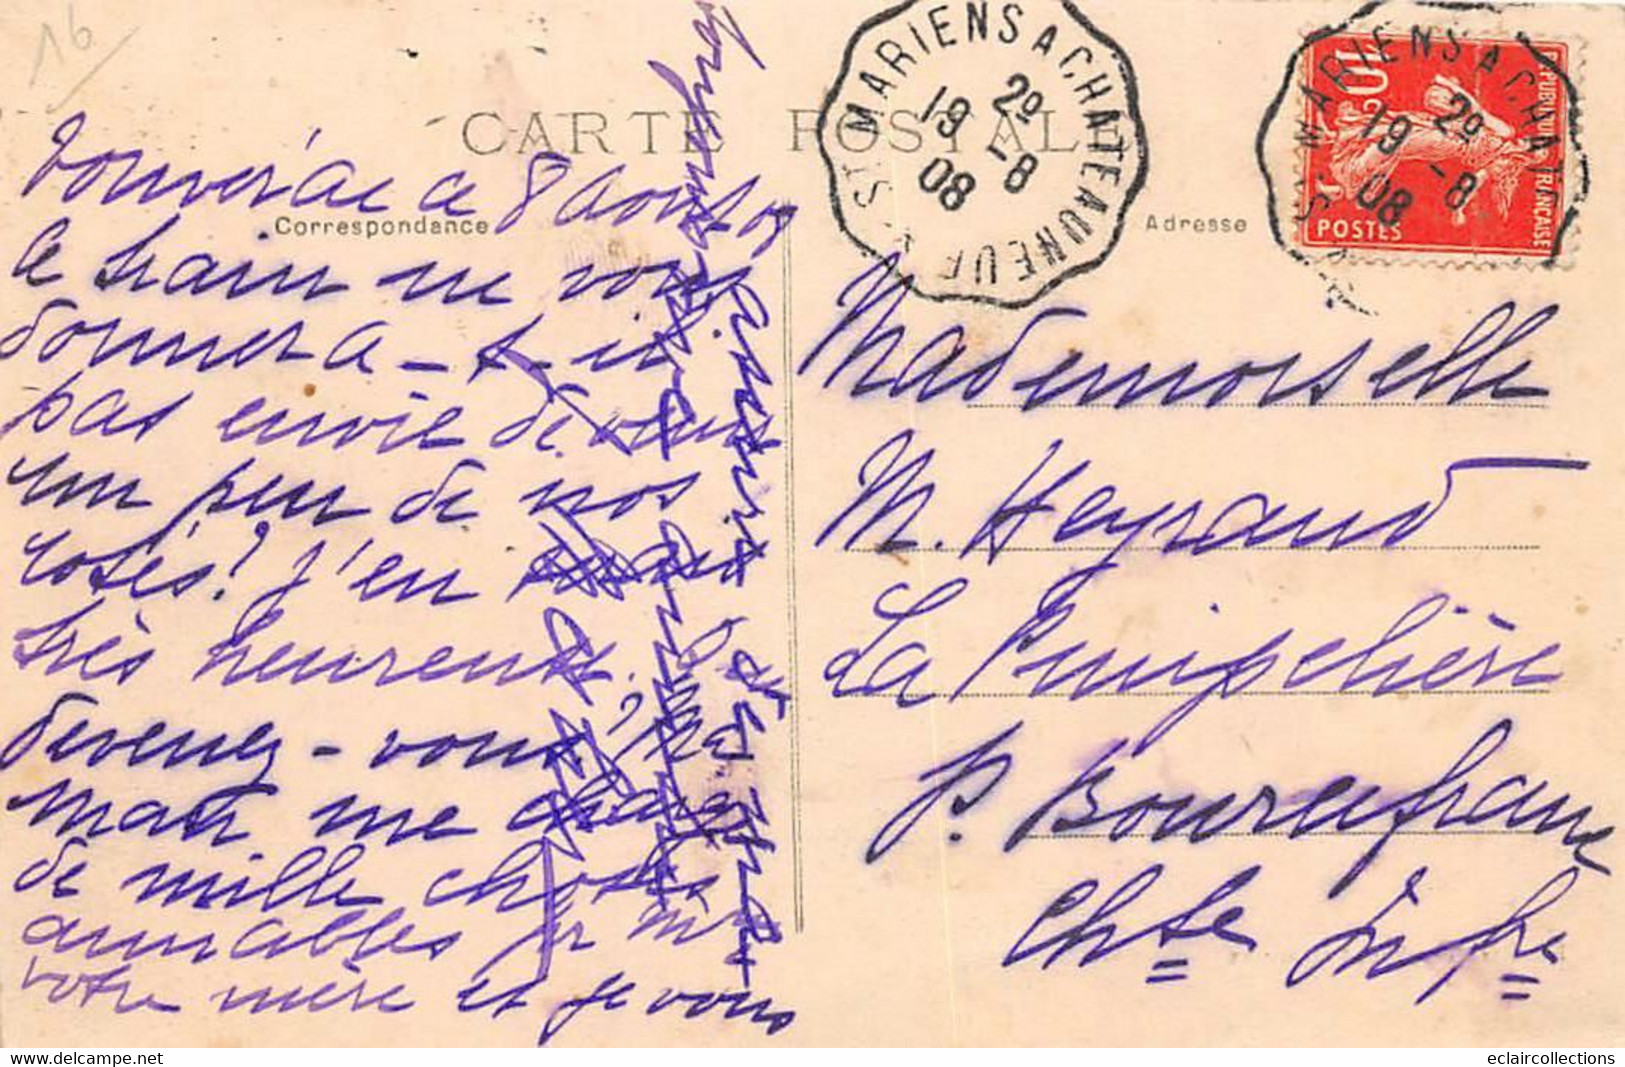 16
CARTE POSTALE
Correspondance
Adresse
ST MARIENS A CHATEAUNEUF
19 2º
08 -8
ST MARIENS A CHATEAUNEUF
19 2º
08 -8
10 c
REPUBLIQUE FRANÇAISE
POSTES
ce 8 Août 08
le train ne vous
donnera-t-il
pas envie de venir
un peu de nos
côtés? J'en serais
très heureuse. Que
devenez-vous? Ma
man me charge
de mille choses
aimables pr Mme
votre mère et je vous
Mademoiselle
M. Heyraud
La Puipelière
p. Bourcefranc
Chte Infre
eclaircollections